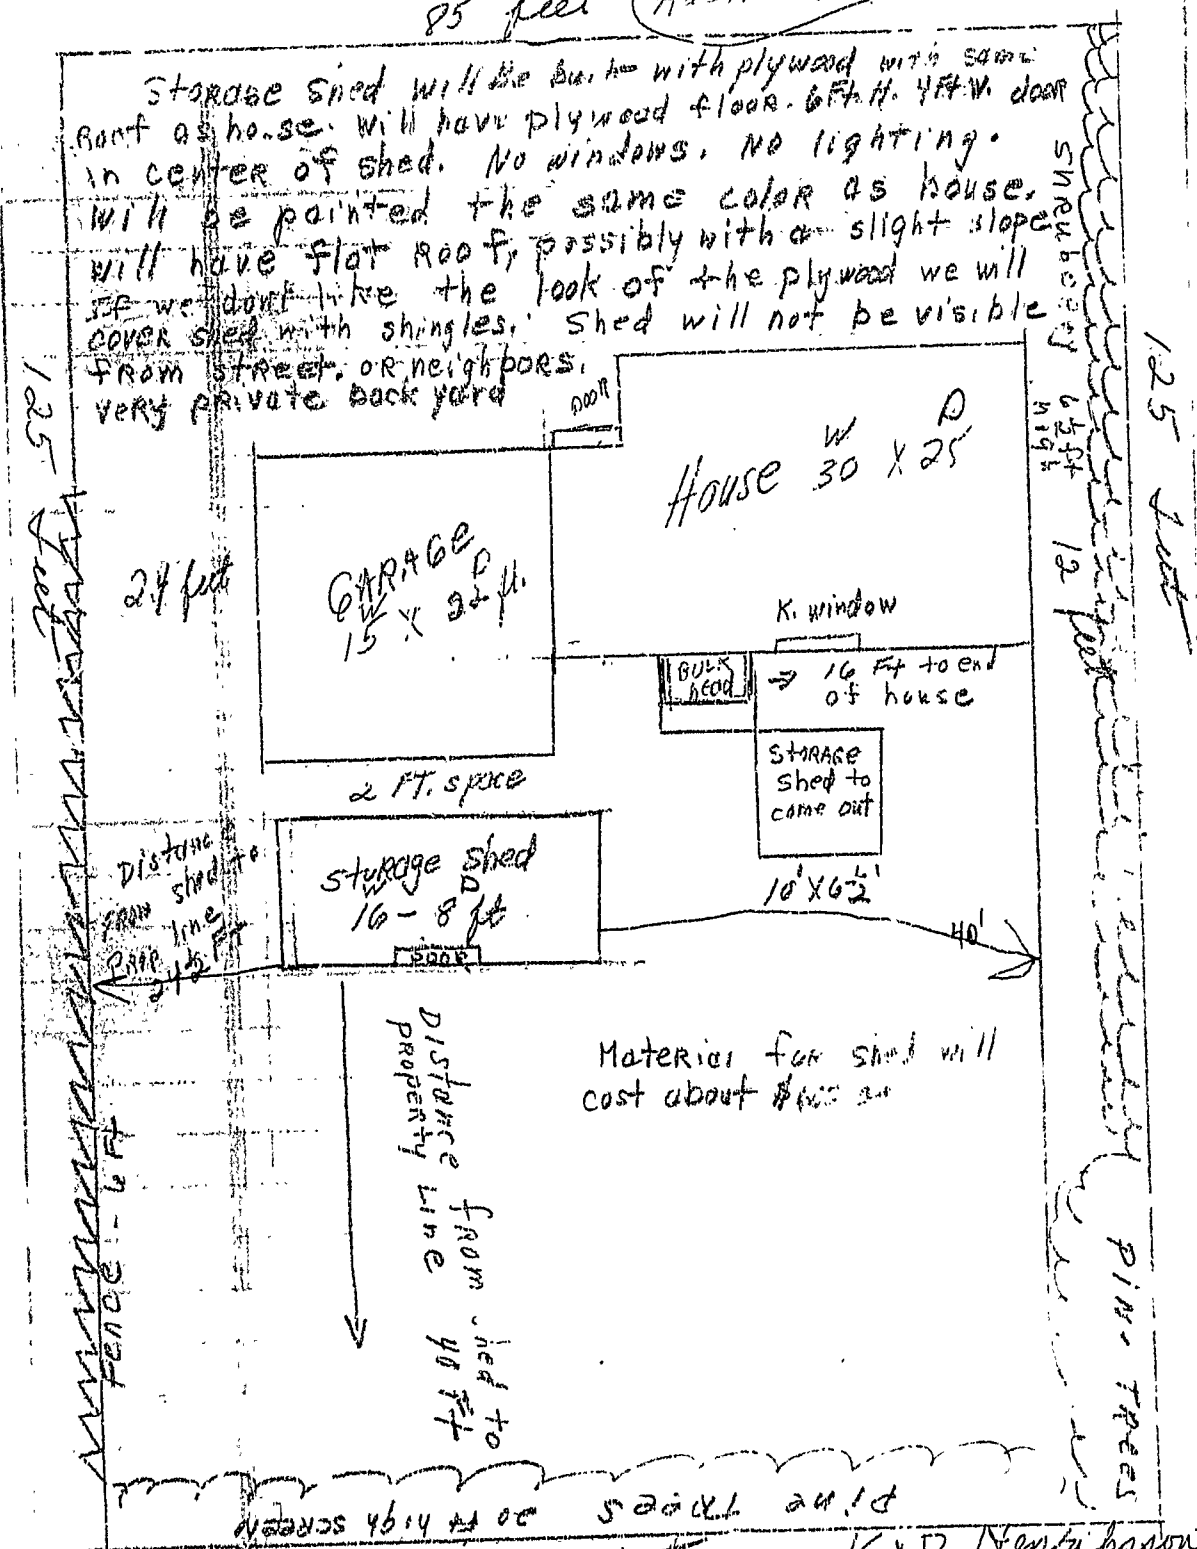 85 feet
Storage Shed will be built with plywood with same
Roof as house. will have plywood floor. 6Ft.H. 4Ft W. door
in center of shed. No windows. No lighting.
Will be painted the same color as house.
will have flat Roof, possibly with a slight slope
If we dont like the look of the plywood we will
cover shed with shingles. Shed will not be visible
from street. OR neighbors.
very private back yard
Door
Shrubbery 6½ ft high
125 feet
125 feet
W D
House 30 X 25
24 feet
GARAGE
W D
15 X 22 ft.
12 feet
K. window
BULK
head
→ 16 Ft to end
of house
STORAGE
shed to
come out
10' X 6½'
2 FT. space
Distance
from shed to
prop line
24½ FT
Storage shed
W D
16 - 8 ft
DOOR
40'
Distance from shed to
property Line 40 Ft
Material for shed will
cost about
Fence - 6 Ft
Pine Trees
Pine Trees 20 Ft high screen